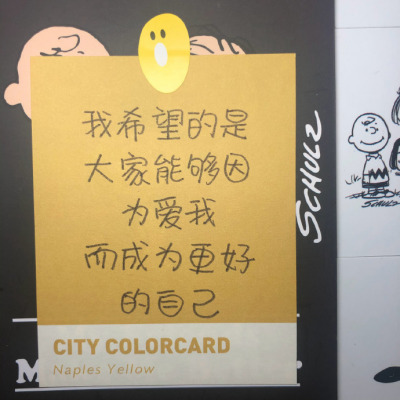 我希望的是
大家能够因
为爱我
而成为更好
的自己
CITY COLORCARD
Naples Yellow
SCHULZ
SCHULZ